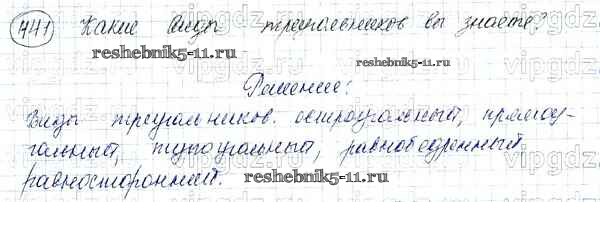 441 Какие виды треугольников вы знаете?
reshebnik5-11.ru reshebnik5-11.ru
Решение:
Виды треугольников: остроугольный, прямоу-
гольный, тупоугольный, равнобедренный
равносторонний.
reshebnik5-11.ru
vipgdz